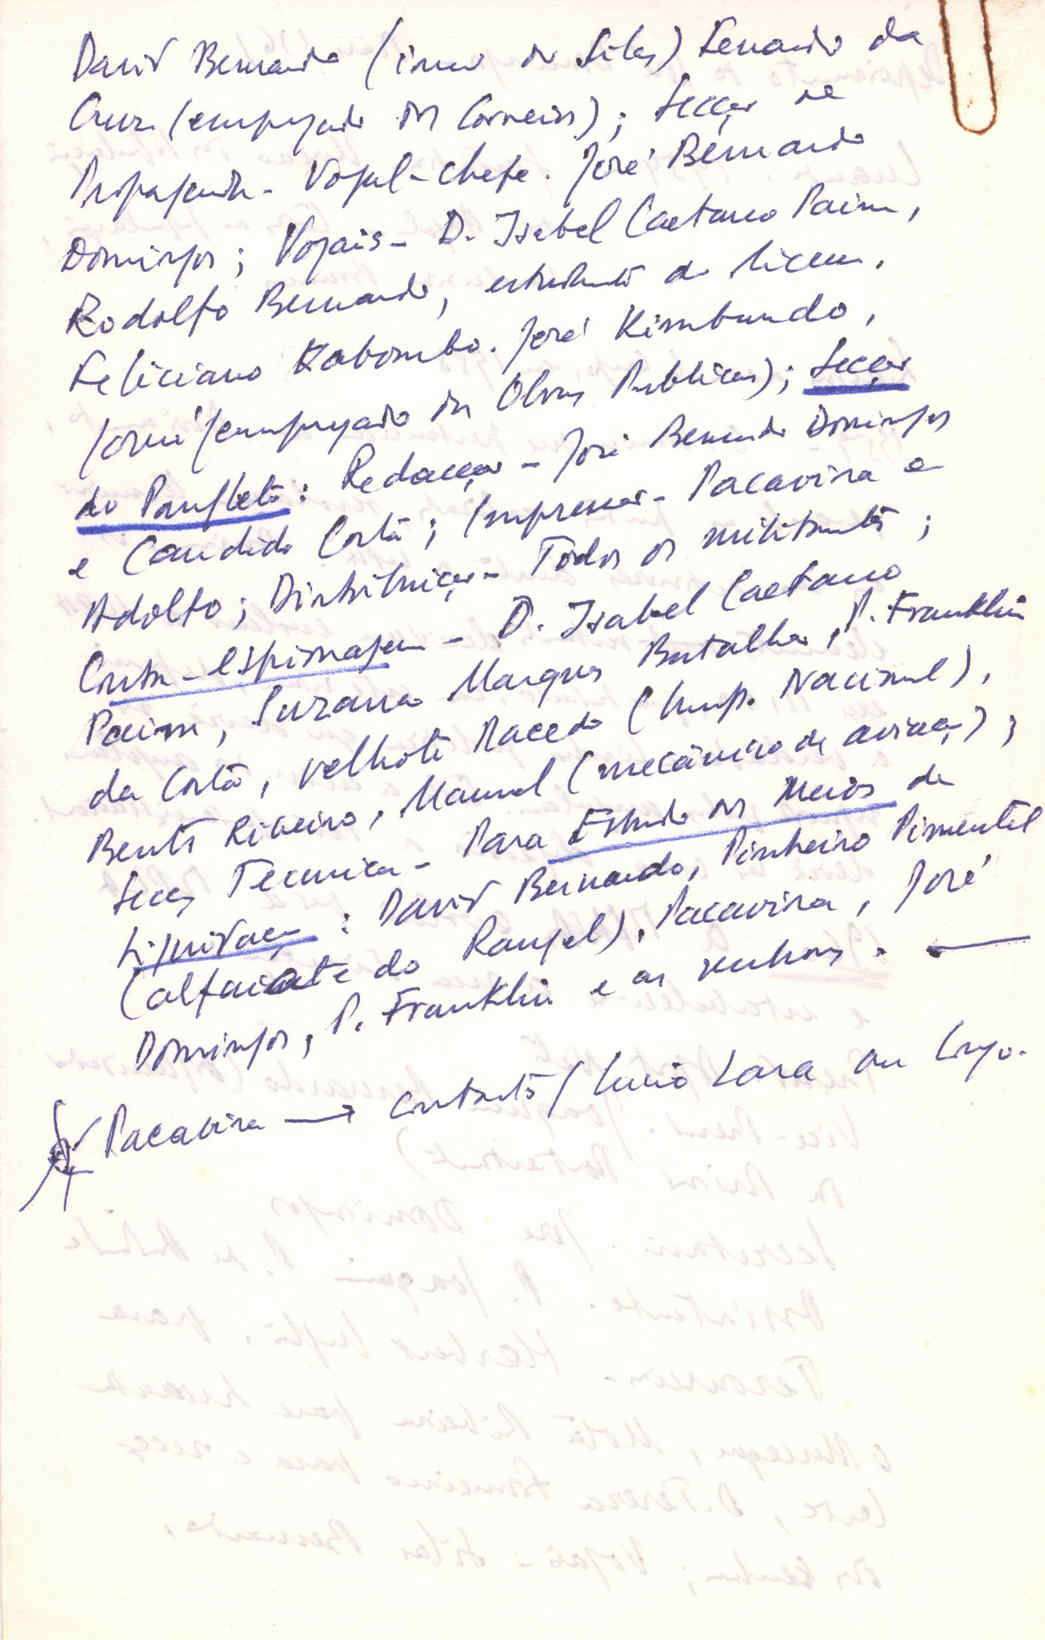 David Bernardo (irmão do Silas) Fernando da
Cruz (empregado dos Correios); Secção de
Propaganda - Vogal-chefe. José Bernardo
Domingos; Vogais - D. Isabel Caetano Paim,
Rodolfo Bernardo, estudante do liceu,
Feliciano Kabombo. José Kimbundo,
(empregado das Obras Publicas); Secção
do Panfleto: Redacção - José Bernardo Domingos
e Candido Costa; Impressão - Pacavira e
Adolfo; Distribuição - Todos os militantes;
Contra-espionagem - D. Isabel Caetano
Paim, Suzana Marques Batalha, P. Franklin
da Costa, velhote Macedo (Imp. Nacional),
Bento Ribeiro, Manuel (mecânico de aviação);
Secção Técnica - Para Estudo dos Meios de
Liquidação: David Bernardo, Pinheiro Pimentel
(alfaiate do Rangel), Pacavira, José
Domingos, P. Franklin e as senhoras. —
Pacavira → contacto / Lucio Lara ou Congo.